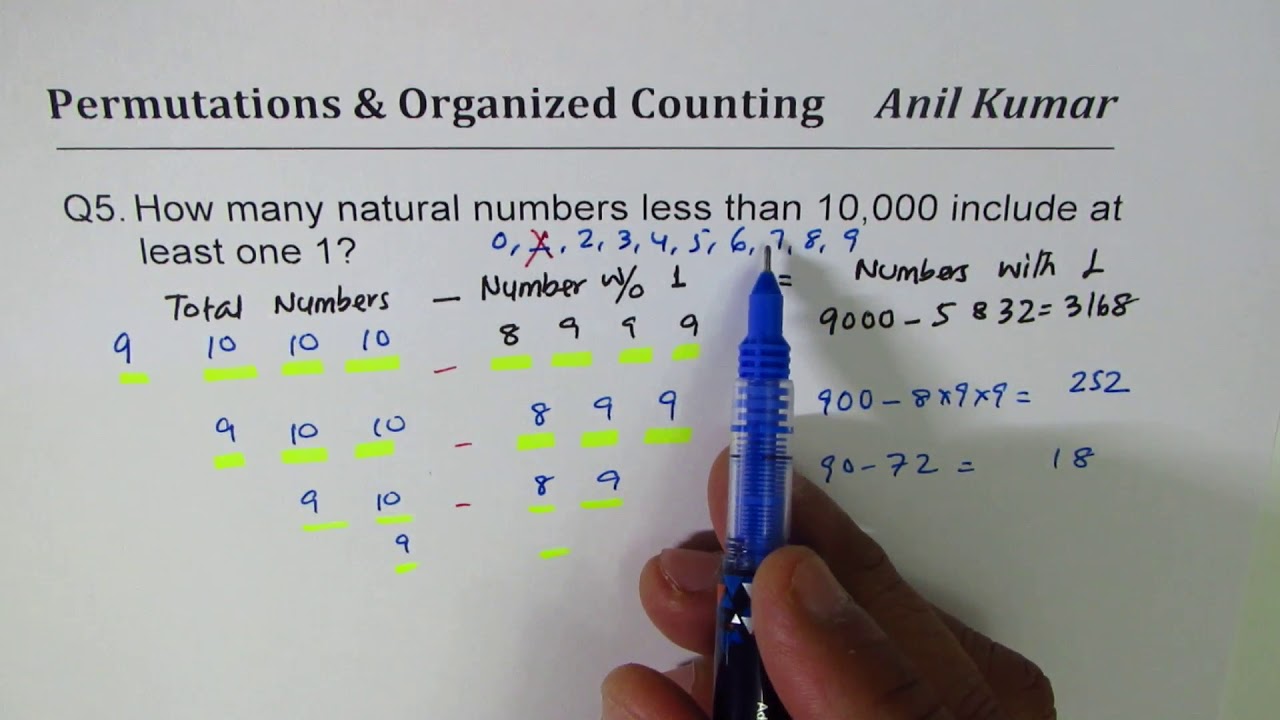 Permutations & Organized Counting Anil Kumar
Q5. How many natural numbers less than 10,000 include at
least one 1?
0, 1, 2, 3, 4, 5, 6, 7, 8, 9
Total Numbers − Number w/o 1 = Numbers with 1
9 10 10 10 − 8 9 9 9 9000 − 5832 = 3168
9 10 10 − 8 9 9 900 − 8×9×9 = 252
9 10 − 8 9 90 − 72 = 18
9
Ad